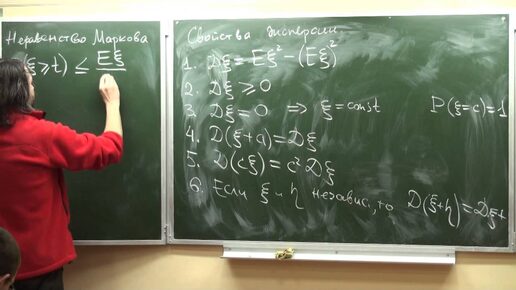 Неравенство Маркова
(ξ ≥ t) ≤ Eξ
Свойства дисперсии
1. Dξ = Eξ² − (Eξ)²
2. Dξ ≥ 0
3. Dξ = 0 ⇒ ξ = const P(ξ=c)=1
4. D(ξ+a) = Dξ
5. D(cξ) = c² Dξ
6. Если ξ и η независ., то D(ξ+η)=Dξ+